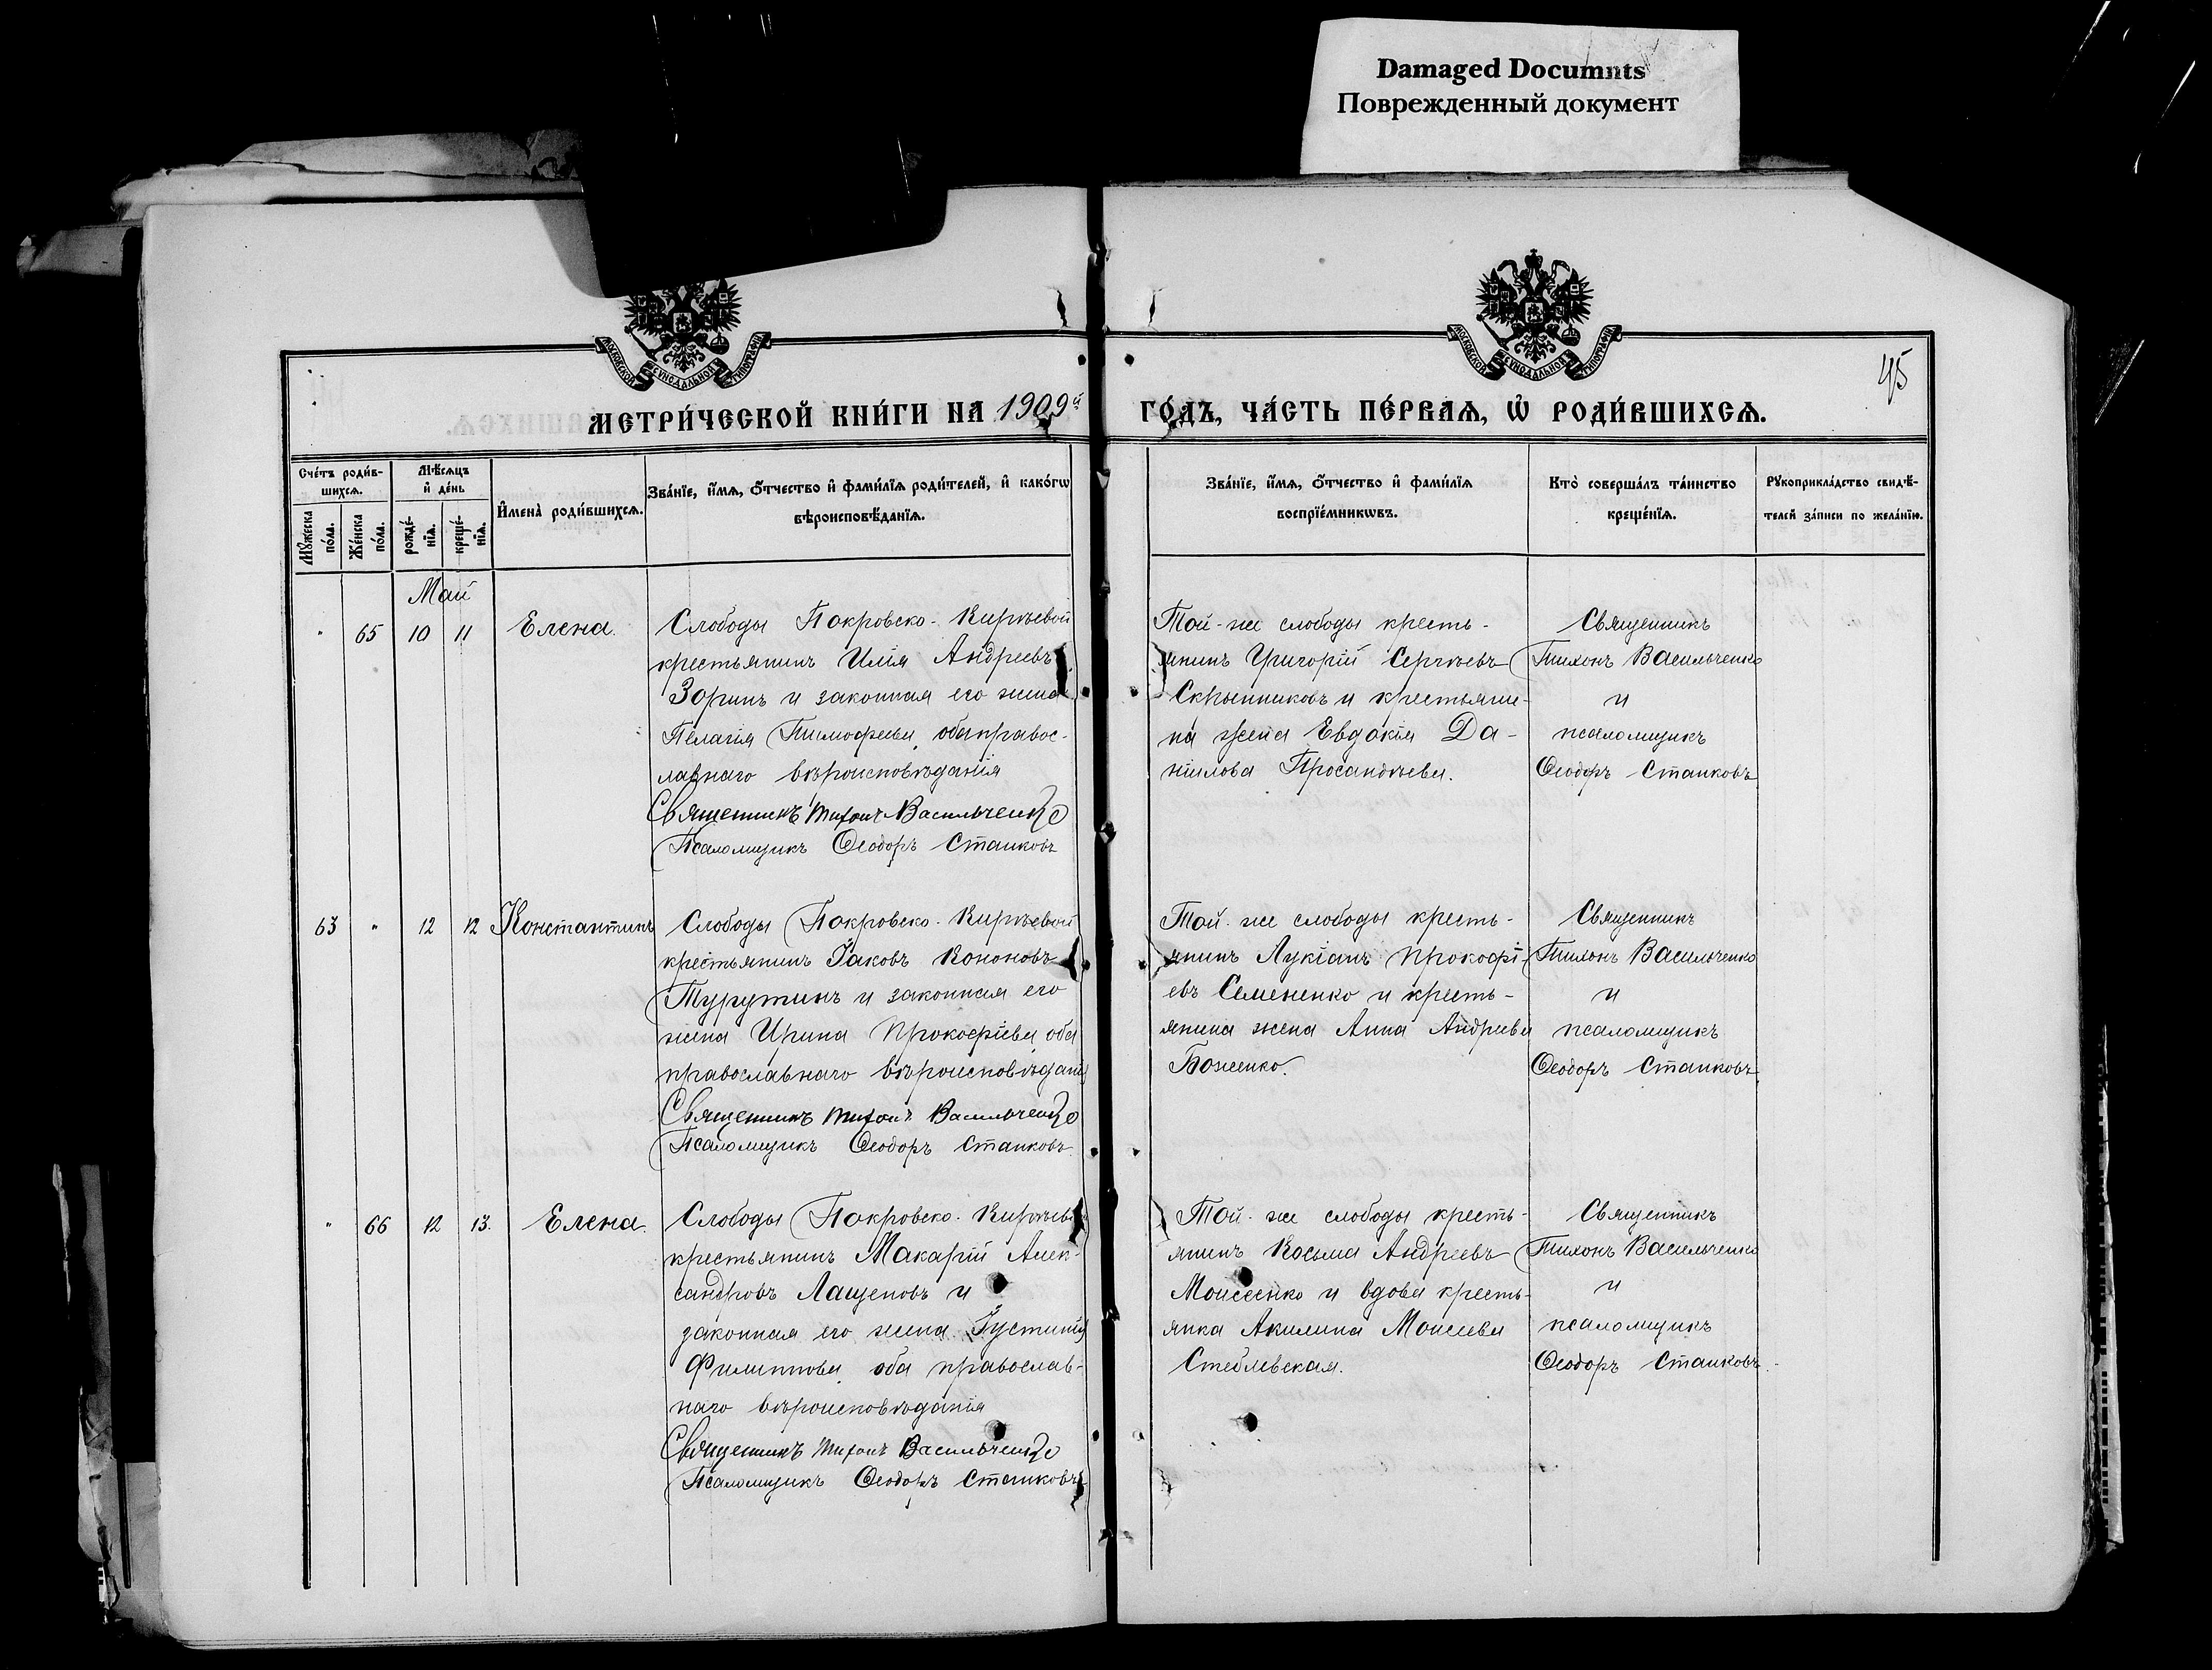 Damaged Documnts
Поврежденный документ
МОСКОВСКОЙ СѴНОДАЛЬНОЙ ТИПОГРАФІИ
МОСКОВСКОЙ СѴНОДАЛЬНОЙ ТИПОГРАФІИ
45
МЕТРИ́ЧЕСКОЙ КНИ́ГИ НА 1909й ГО́ДЪ, ЧА́СТЬ ПЕ́РВАѦ, Ѡ РОДИ́ВШИХСѦ.
Сче́тъ роди́в-
шихсѧ.
Мѣ́сѧцъ
и де́нь
Мꙋ́жеска
по́ла.
Же́нска
по́ла.
рожде́-
нїѧ.
креще́-
нїѧ.
Имена̀ роди́вшихсѧ.
Зва́нїе, и́мѧ, о́тчество и фами́лїѧ роди́телей, и како́гѡ
вѣроисповѣ́данїѧ.
Зва́нїе, и́мѧ, о́тчество и фами́лїѧ
воспрїе́мникѡвъ.
Кто̀ соверша́лъ та́инство
креще́нїѧ.
Рꙋкоприкла́дство свидѣ́-
телей за́писи по жела́нїю.
Май
" 65 10 11 Елена.
Слободы Покровско-Кирѣевой
крестьянинъ Илія Андреевъ
Зоринъ и законная его жена
Пелагія Тимофеева, оба правос-
лавнаго вѣроисповѣданія
Священникъ Тихонъ Васильченко
Псаломщикъ Ѳеодоръ Станковъ
Той-же слободы кресть-
янинъ Григорій Сергѣевъ
Скрынниковъ и крестьяни-
на жена Евдокія Да-
ніилова Просандѣева.
Священникъ
Тихонъ Васильченко
и
псаломщикъ
Ѳеодоръ Станковъ
63 " 12 12 Константинъ
Слободы Покровско-Кирѣевой
крестьянинъ Іаковъ Кононовъ
Турутинъ и законная его
жена Ирина Прокофіева, оба
православнаго вѣроисповѣданія
Священникъ Тихонъ Васильченко
Псаломщикъ Ѳеодоръ Станковъ
Той-же слободы кресть-
янинъ Лукіанъ Прокофі-
евъ Семененко и кресть-
янина жена Анна Андреева
Боженко.
Священникъ
Тихонъ Васильченко
и
псаломщикъ
Ѳеодоръ Станковъ
" 66 12 13. Елена.
Слободы Покровско-Кирѣевой
крестьянинъ Макарій Алек-
сандровъ Лащеновъ и
законная его жена Іустинія
Филиппова, оба православ-
наго вѣроисповѣданія
Священникъ Тихонъ Васильченко
Псаломщикъ Ѳеодоръ Станковъ
Той-же слободы кресть-
янинъ Косьма Андреевъ
Моисеенко и вдова кресть-
янка Акилина Моисеева
Стеблевская.
Священникъ
Тихонъ Васильченко
и
псаломщикъ
Ѳеодоръ Станковъ